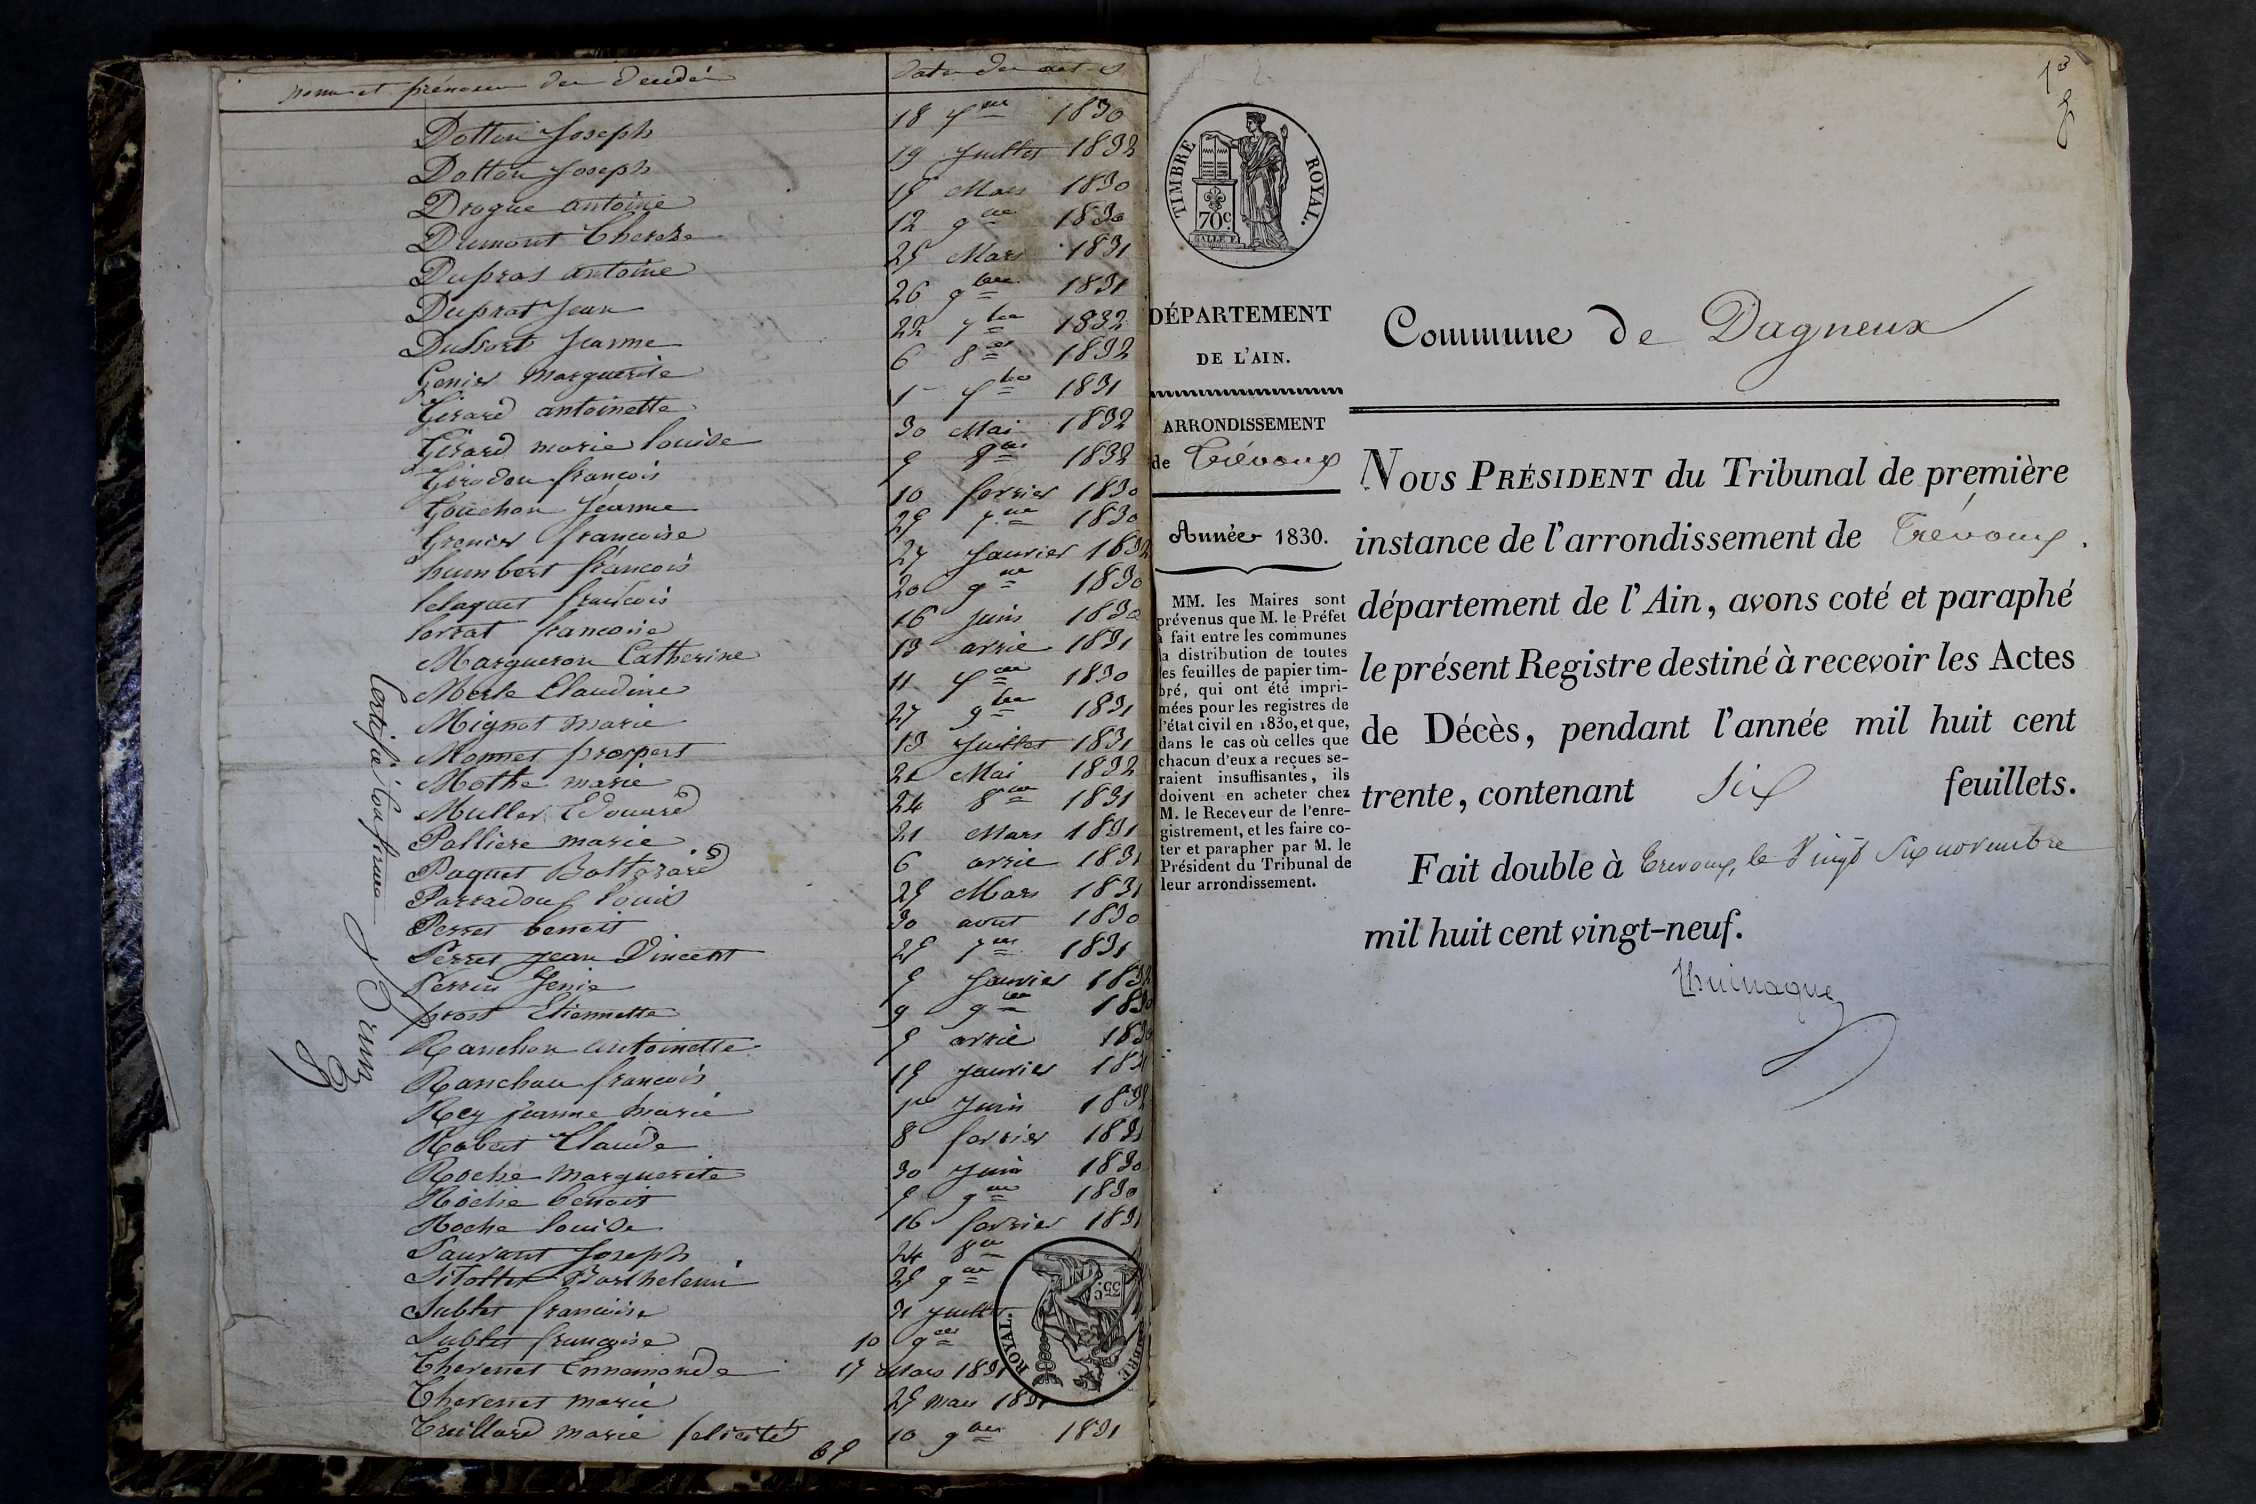 noms et prénoms des décédés | date des actes
Dotton Joseph 18 7bre 1830
Dotton Joseph 19 Juillet 1832
Drogue antoine 15 Mars 1830
Dumont Therese 12 9bre 1830
Dupras antoine 25 Mars 1831
Duprat Jean 26 9bre 1831
Dussort Jeanne 22 7bre 1832
Genier marguerite 6 8bre 1832
Girard antoinette 1er 7bre 1831
Girard marie louise 30 Mai 1832
Girodon francois 5 8bre 1832
Gouchon Jeanne 10 fevrier 1830
Grenier francoise 25 7bre 1830
humbert francois 27 Janvier 1832
francois 20 9bre 1830
lorrat francoise 16 juin 1830
Margueron Catherine 13 avril 1831
Merle Claudine 11 7bre 1830
Mignot marie 27 9bre 1831
Monnet prospert 13 Juillet 1831
Mothe marie Mai 1832
Muller Edouard 24 8bre 1831
Palliere marie 21 Mars 1831
Paquet Baltazard 6 avril 1831
Parradoux louis 25 Mars 1831
Perret benoit 30 aout 1830
Perret Jean Vincent 25 7bre 1831
Perrin Genie 5 Janvier 1832
prost Etiennette 9 9bre 1830
Ranchon antoinette 5 avril 1830
Ranchon francois 15 Janvier 1831
Rey jeanne marie 1er Juin 1832
Robert Claude 8 fevrier 1831
Roche marguerite 30 Juin 1830
Roche benoit 5 9bre 1830
Roche louise 16 fevrier 1831
Saurant Joseph 24 8bre
Barthelemi 25 9bre
Sublet francoise 31 juillet
Sublet francoise 10 9bre
Thevenet Ennemonde 17 Mars 1831
Thevenet marie 25 mars 1831
Truillard marie felicité 10 9bre 1831
Certifié Conforme
ROYAL.
35c.
TIMBRE ROYAL.
70c.
DÉPARTEMENT
DE L'AIN.
ARRONDISSEMENT
de Trévoux
Année 1830.
MM. les Maires sont
prévenus que M. le Préfet
a fait entre les communes
la distribution de toutes
les feuilles de papier tim-
bré, qui ont été impri-
mées pour les registres de
l'état civil en 1830, et que,
dans le cas où celles que
chacun d'eux a reçues se-
raient insuffisantes, ils
doivent en acheter chez
M. le Receveur de l'enre-
gistrement, et les faire co-
ter et parapher par M. le
Président du Tribunal de
leur arrondissement.
Commune de Dagneux
NOUS PRÉSIDENT du Tribunal de première
instance de l'arrondissement de Trévoux.
département de l'Ain, avons coté et paraphé
le présent Registre destiné à recevoir les Actes
de Décès, pendant l'année mil huit cent
trente, contenant six feuillets.
Fait double à Trevoux, le Vingt Six novembre
mil huit cent vingt-neuf.